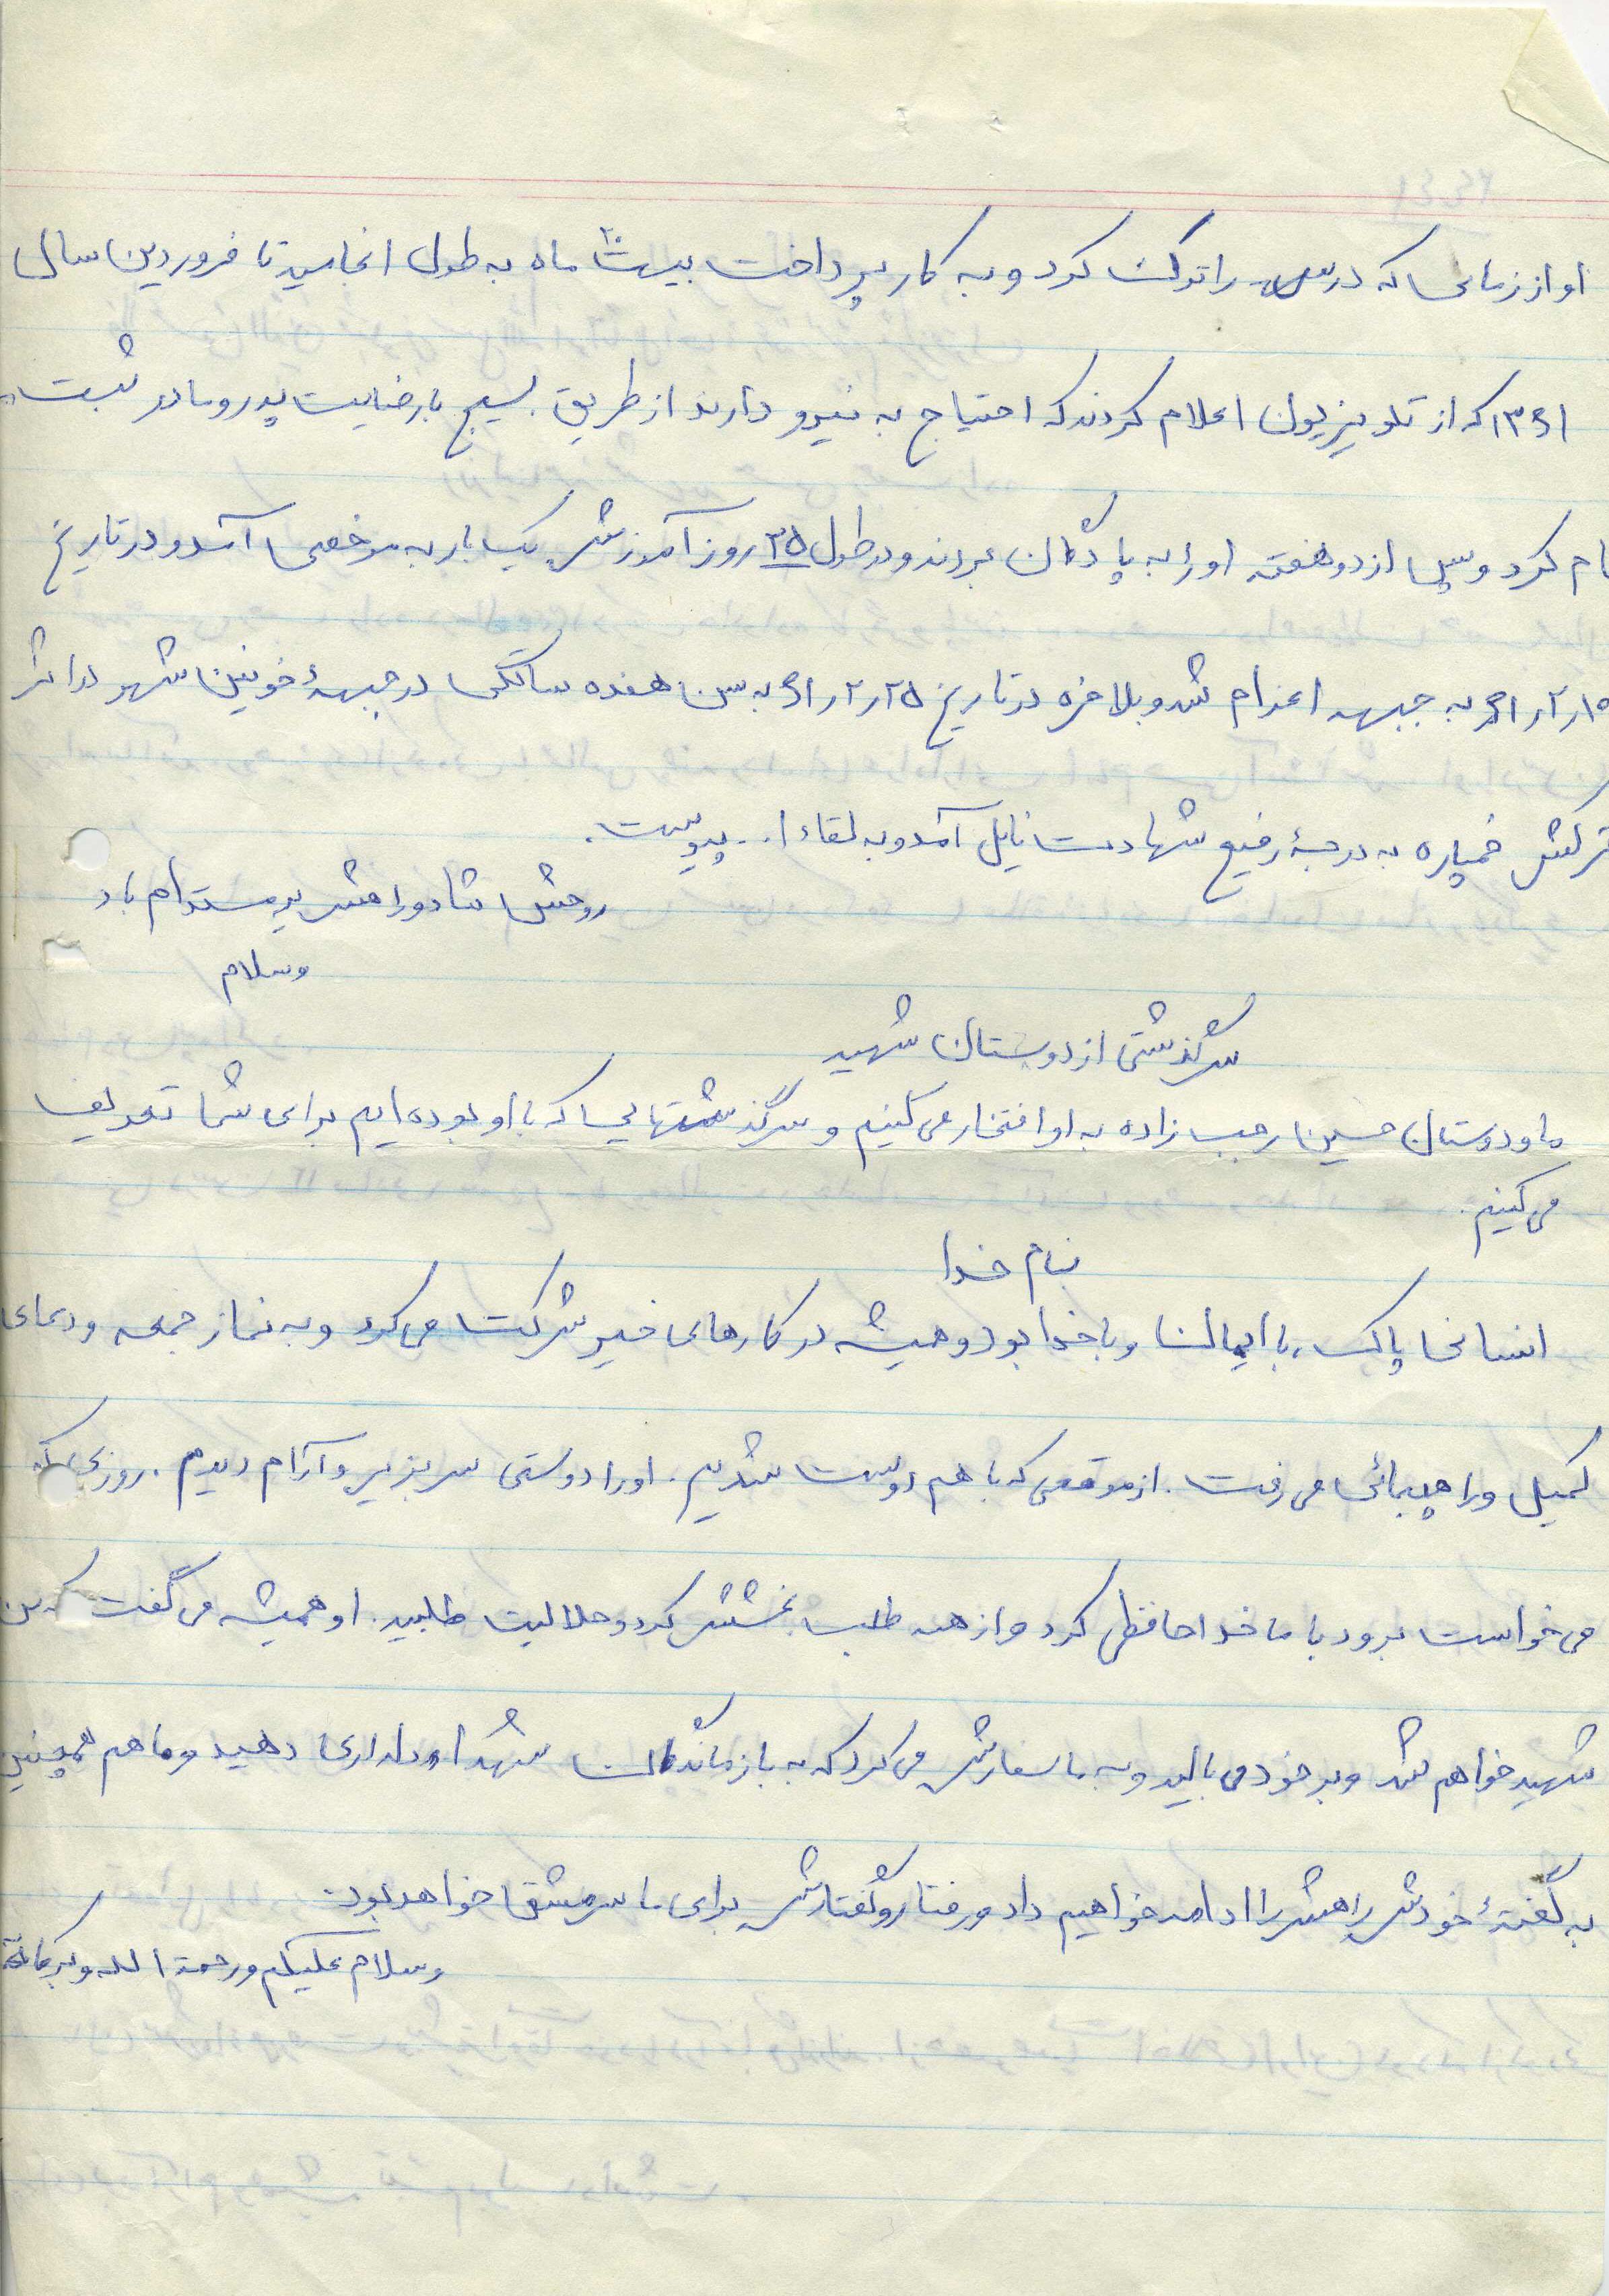 او از زمانی که درس را ترک کرد و به کار پرداخت بیست ماه به طول انجامید تا فروردین سال
۱۳۶۱ که از تلویزیون اعلام کردند که احتیاج به نیرو دارند از طریق بسیج با رضایت پدر و مادر ثبت
نام کرد و پس از دو هفته او را به پادگان بردند و در طول ۳۵ روز آموزش یکبار به مرخصی آمد و در تاریخ
به جبهه اعزام شد و بلاخره در تاریخ ۶۱ر۲ر۲۵ به سن هفده سالگی در جبههٔ خونین شهر در اثر
ترکش خمپاره به درجهٔ رفیع شهادت نایل آمد و به لقاء ا... پیوست.
روحش شاد و راهش پر مستدام باد
وسلام
سرگذشتی از دوستان شهید
ما دوستان حسین رجب زاده به او افتخار می کنیم و سرگذشتهایی که با او بوده ایم برای شما تعریف
می کنیم.
بنام خدا
انسانی پاک، با ایمان و با خدا بود و همیشه در کارهای خیر شرکت می کرد و به نماز جمعه و دعای
کمیل و راهپیمائی می رفت. از موقعی که با هم دوست شدیم. او را دوستی سربزیر و آرام دیدم. روزی که
می خواست برود با ما خداحافظی کرد و از همه طلب بخشش کرد و حلالیت طلبید. او همیشه می گفت که من
شهید خواهم شد و بر خود می بالید و به ما سفارش می کرد که به بازماندگان شهدا دلداری دهید و ما هم همچنین
به گفتهٔ خودش راهش را ادامه خواهیم داد و رفتار و گفتارش برای ما سرمشق خواهد بود.
وسلام علیکم ورحمة الله وبرکاته